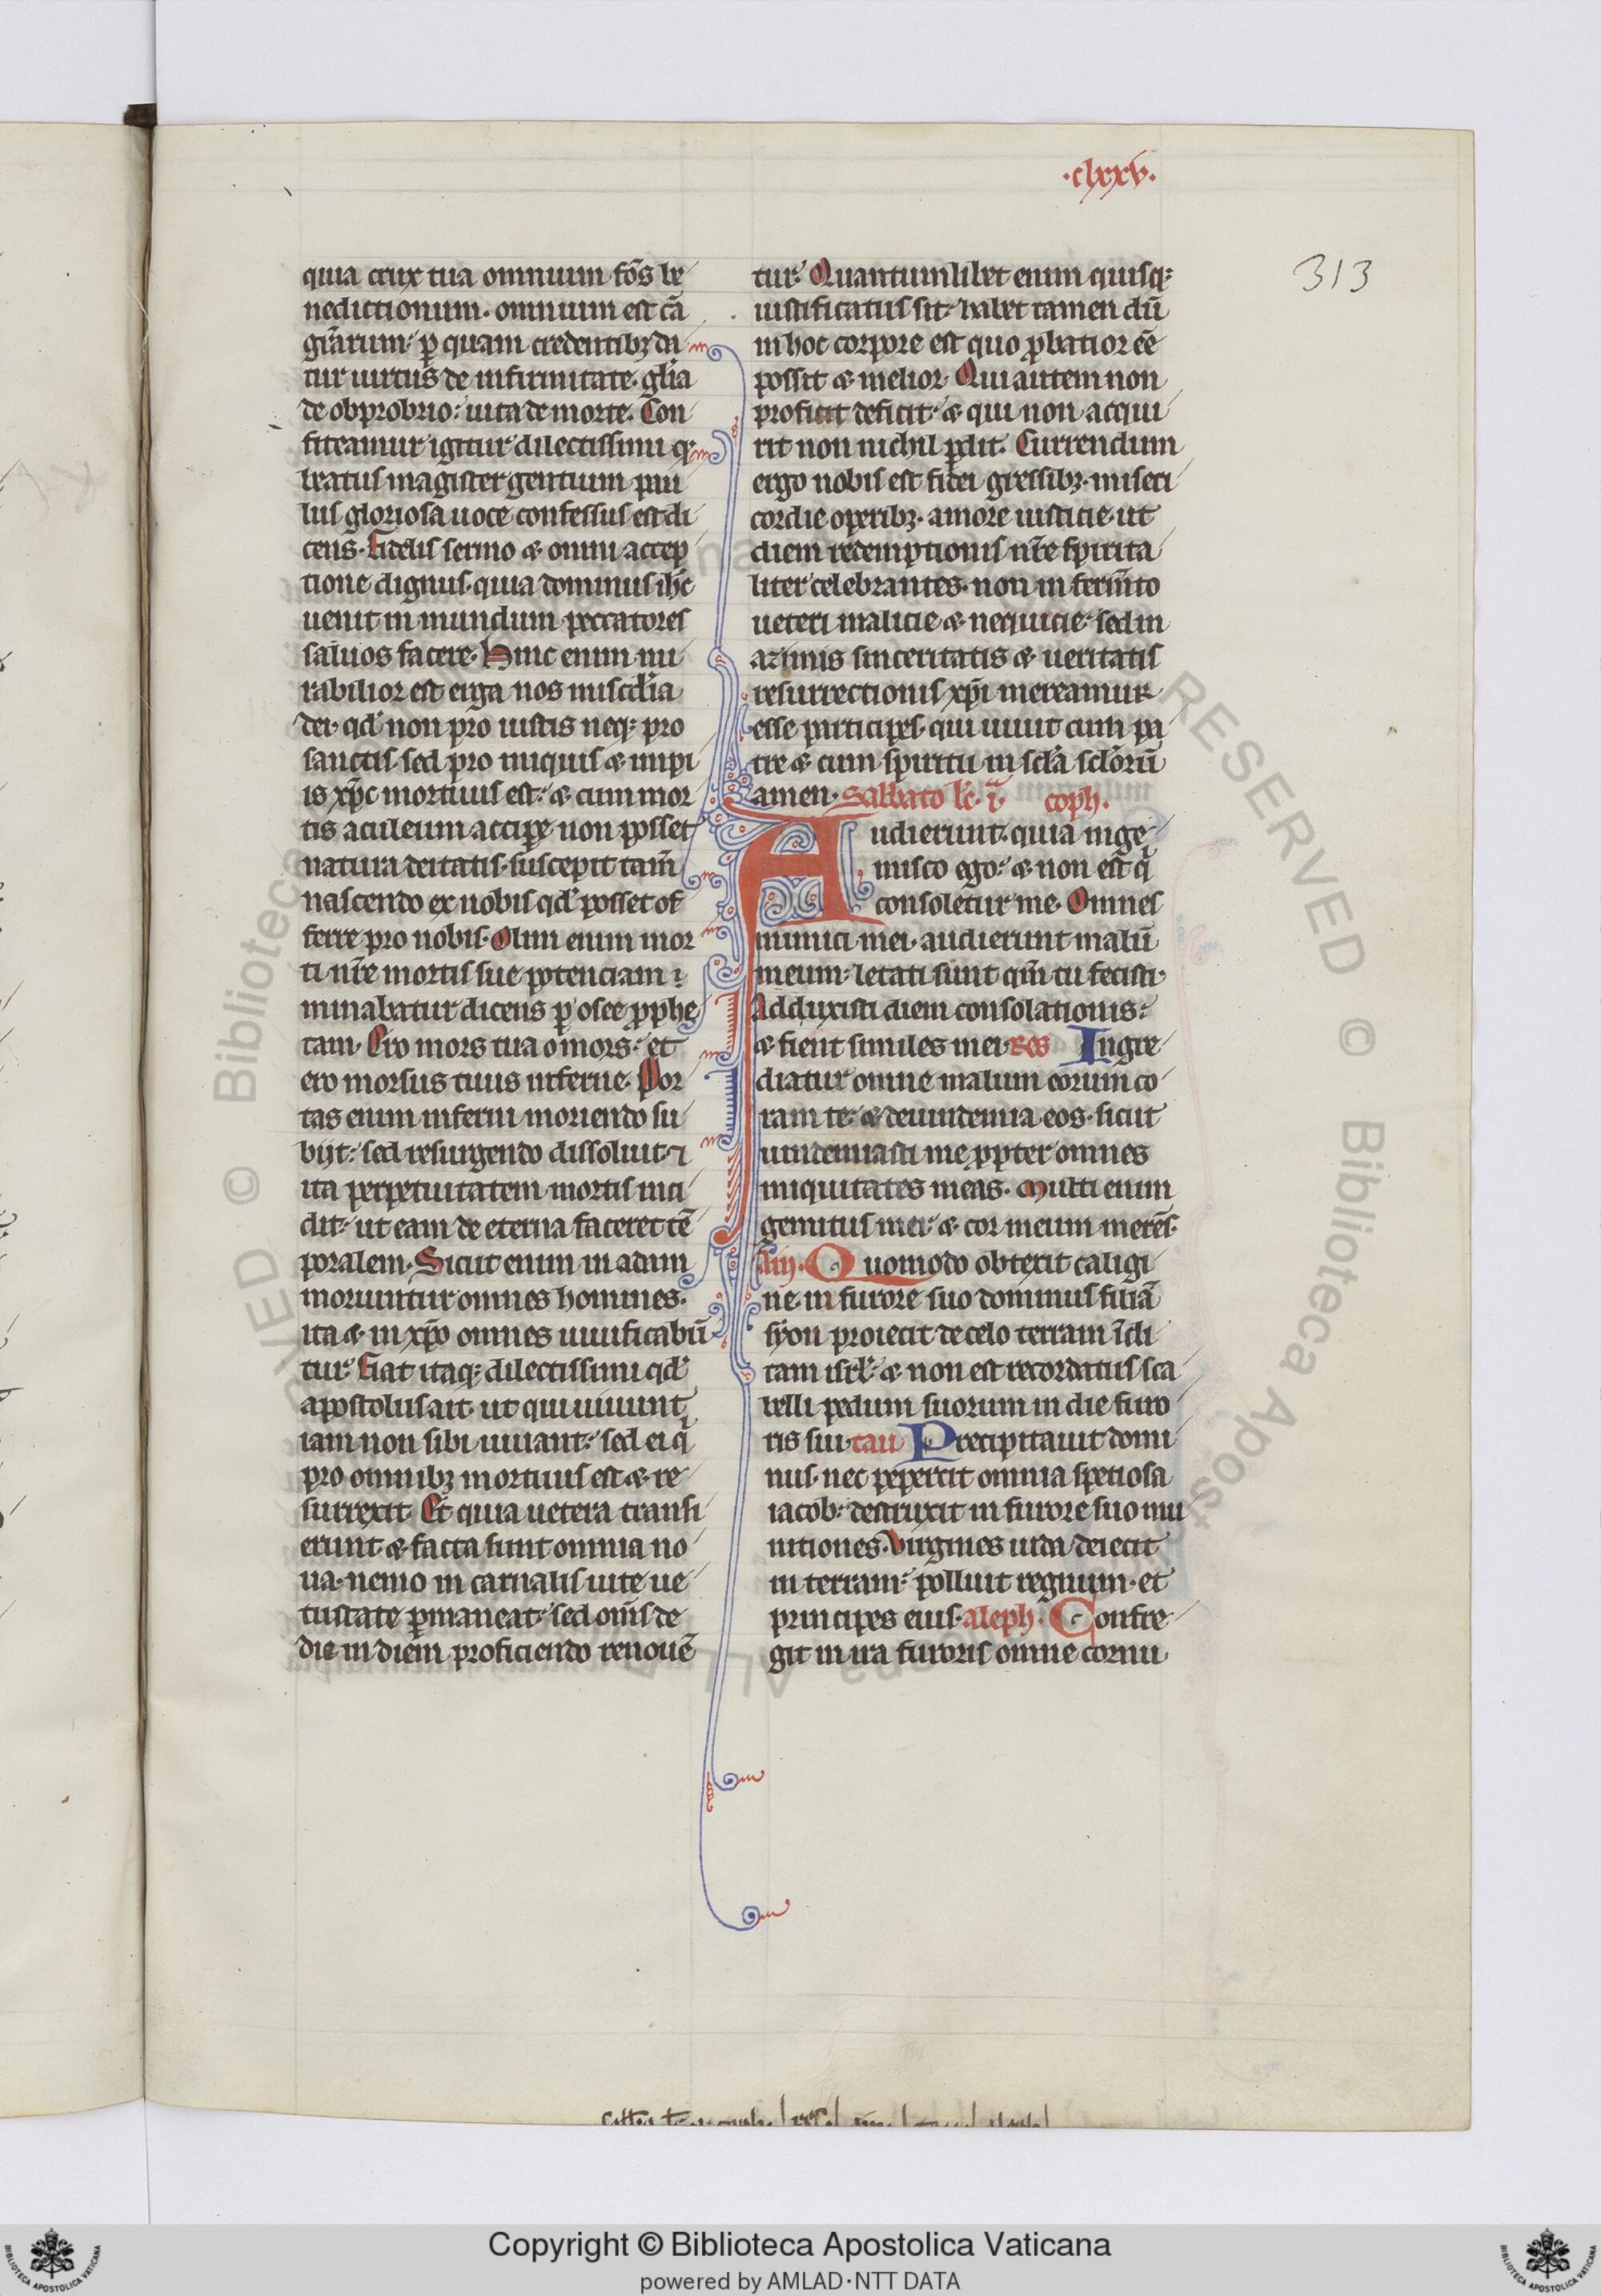 ·clxxv·
313
quia crux tua omnium fo͞s be
nedictionum· omnium est cā
gr̄arum· ꝑ quam credentibꝫ da
tur uirtus de infirmitate· gl̄ia
de obprobrio· uita de morte. Con
fiteamur igitur dilectissimi qꝫ
beatus magister gentium pau
lus gloriosa uoce confessus est di
cens· Fidelis sermo & omni accep
tione dignus· quia dominus ih̄c
uenit in mundum peccatores
saluos facere· Hinc enim mi
rabilior est erga nos miscd̄ia
dei· qd̄ non pro iustis neqꝫ pro
sanctis· sed pro iniquis & impi
is xp̄c mortuus est· & cum mor
tis aculeum accipe non posset
natura deitatis· suscepit tam̄
nascendo ex nobis qd̄ posset of
ferre pro nobis· Olim enim mor
ti nr̄e mortis sue potenciam
minabatur dicens ꝑ osee ꝓphe
tam· Ero mors tua o mors· et
ero morsus tuus inferne· Por
tas enim inferni moriendo su
biit· sed resurgendo dissoluit ⁊
ita perpetuitatem mortis inci
dit· ut eam de eterna faceret tē
poralem· Sicut enim in adam
moriuntur omnes homines·
ita & in xp̄o omnes uiuificabū
tur· Fiat itaqꝫ dilectissimi qd̄
apostolus ait· ut qui uiuunt
iam non sibi uiuant· sed ei qͥ
pro omnibꝫ mortuus est & re
surrexit· Et quia uetera transi
erunt & facta sunt omnia no
ua· nemo in carnalis uite ue
tustate ꝑmaneat· sed om̄s de
die in diem proficiendo renouē
tur· Quantumlibet enim quisqꝫ
iustificatus sit· habet tamen dū
in hoc corpore est quo ꝓbatior eē
possit & melior· Qui autem non
proficit deficit· & qui non acqui
rit non nichil ꝑdit· Currendum
ergo nobis est fidei gressibꝫ· miseri
cordie operibꝫ· amore iusticie· ut
diem redemptionis nr̄e spirita
liter celebrantes· non in ferm̄to
ueteri malicie & nequicie· sed in
azimis sinceritatis & ueritatis
resurrectionis xp̄i mereamur
esse participes· qui uiuit cum pa
tre & cum spiritu in scl̄a scl̄orū
amen· Sabbato lc̄· i· coph·
Audierunt· quia inge
misco ego· & non est qͥ
consoletur me· Omnes
inimici mei· audierunt malū
meum· letati sunt qm̄ tu fecisti·
Adduxisti diem consolationis·
& fient similes mei· Res Ingre
diatur omne malum eorum co
ram te· & deuindemia eos· sicut
uindemiasti me ꝓpter omnes
iniquitates meas· Multi enim
gemitus mei· & cor meum merēs·
Sin· Quomodo obtexit caligi
ne in furore suo dominus filiā
syon proiecit de celo terram īcli
tam isrl̄· & non est recordatus sca
belli pedum suorum in die furo
ris sui· tau Precipitauit domi
nus· nec pepercit omnia spetiosa
iacob· destruxit in furore suo mu
nitiones· Virgines iuda deiecit
in terram· polluit regnum· et
principes eius· aleph· Confre
git in ira furoris omne cornu
Copyright © Biblioteca Apostolica Vaticana
powered by AMLAD·NTT DATA